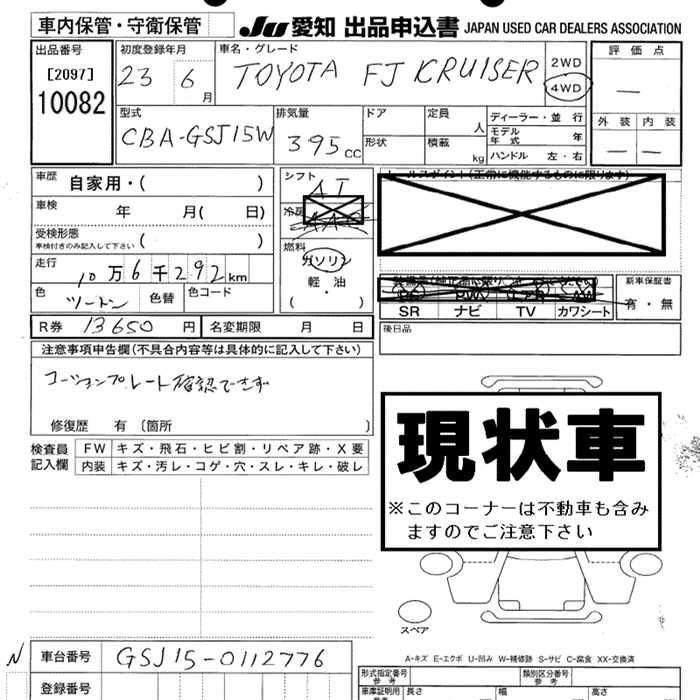 車内保管・守衛保管
JU 愛知 出品申込書 JAPAN USED CAR DEALERS ASSOCIATION
出品番号
[2097]
10082
初度登録年月
23 6 月
車名・グレード
TOYOTA FJ CRUISER
2WD
4WD
評価点
—
外装 内装
— —
型式
CBA-GSJ15W
排気量
395 CC
ドア
形状
定員 人
積載 kg
ディーラー・並行
モデル年式 年
ハンドル 左・右
車歴 自家用・( )
車検 年 月( 日)
受検形態
車検付きのみ記入して下さい ( )
走行 10万6千292km
色 ツートン 色替 色コード
シフト AT
冷房 AAC
燃料
ガソリン
軽油
( ・ )
セールスポイント(正常に機能するものに限ります)
SR ナビ TV カワシート
新車保証書
有・無
後日品
R券 13650 円 名変期限 月 日
注意事項申告欄(不具合内容等は具体的に記入して下さい)
コーションプレート確認できず
修復歴 有 〔箇所 〕
検査員記入欄
FW キズ・飛石・ヒビ割・リペア跡・X要
内装 キズ・汚レ・コゲ・穴・スレ・キレ・破レ
現状車
※このコーナーは不動車も含み
ますのでご注意下さい
スペア
A-キズ E-エクボ U-凹み W-補修跡 S-サビ C-腐食 XX-交換済
N 車台番号 GSJ15-0112776
登録番号
形式指定番号
参考
類別区分番号
参考
車庫証明用
参考
長さ 幅 高さ